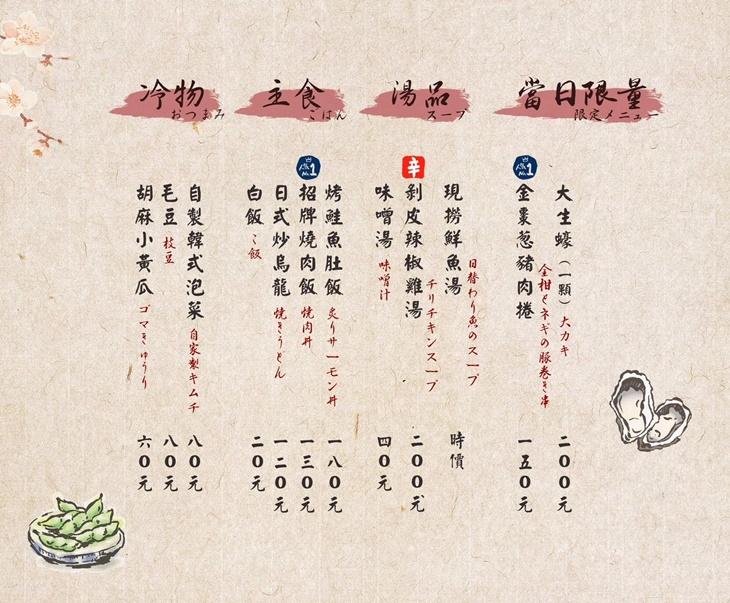 當日限量
限定メニュー
大生蠔（一顆）
大カキ
二〇〇元
人気No.1
金棗蔥豬肉捲
金柑とネギの豚巻き串
一五〇元
湯品
スープ
現撈鮮魚湯
日替わり魚のスープ
時價
辛
剝皮辣椒雞湯
チリチキンスープ
二〇〇元
味噌湯
味噌汁
四〇元
主食
ごはん
烤鮭魚肚飯
炙りサーモン丼
一八〇元
人気No.1
招牌燒肉飯
焼肉丼
一三〇元
日式炒烏龍
焼きうどん
一二〇元
白飯
ご飯
二〇元
冷物
おつまみ
自製韓式泡菜
自家製キムチ
八〇元
毛豆
枝豆
八〇元
胡麻小黃瓜
ゴマきゅうり
六〇元